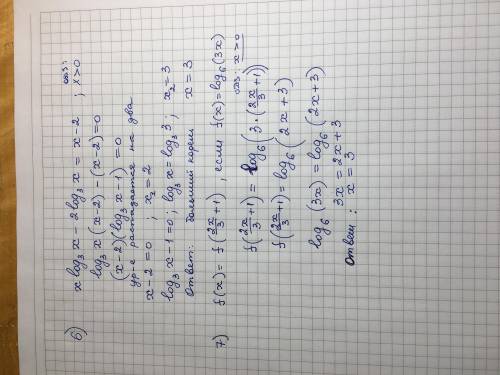 6) x log₃ x - 2 log₃ x = x - 2 ; одз: x > 0
log₃ x (x-2) - (x-2) = 0
(x-2)(log₃ x - 1) = 0
ур-е распадается на два
x - 2 = 0 ; x₂ = 2
log₃ x - 1 = 0 ; log₃ x = log₃ 3 ; x₂ = 3
Ответ: больший корень x = 3
7) f(x) = f(2x/3 + 1) , если f(x) = log₆ (3x)
f(2x/3 + 1) = log₆ (3 · (2x/3 + 1)) одз: x > 0
f(2x/3 + 1) = log₆ (2x + 3)
log₆ (3x) = log₆ (2x + 3)
3x = 2x + 3
Ответ: x = 3